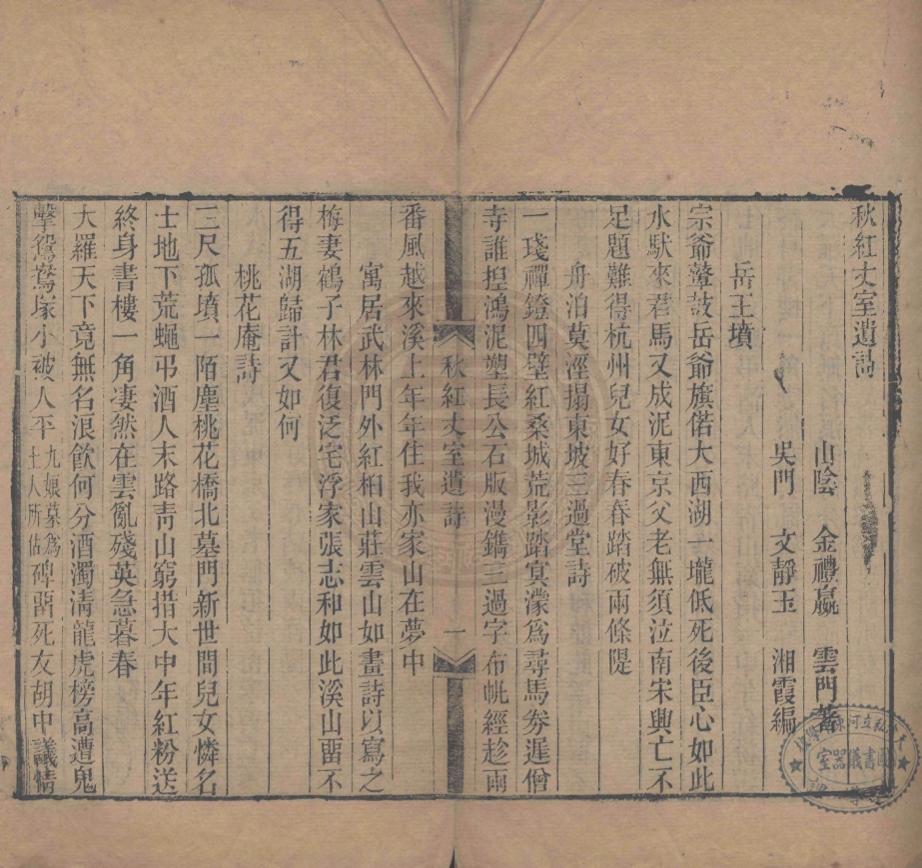 秋紅丈室遺詩
山陰　金禮嬴　雲門著
吳門　文靜玉　湘霞編
岳王墳
宗爺鼙鼓岳爺旗偌大西湖一壠低死後臣心如此
水馱來君馬又成泥東京父老無須泣南宋興亡不
足題難得杭州兒女好春春踏破兩條隄
舟泊莫涇揭東坡三過堂詩
一琖禪鐙四壁紅桑城荒影踏冥濛爲尋馬券遲僧
寺誰捏鴻泥塑長公石版漫鐫三過字布帆經趁兩
秋紅丈室遺詩　一
番風越來溪上年年住我亦家山在夢中
寓居武林門外紅柏山莊雲山如畫詩以寫之
梅妻鶴子林君復泛宅浮家張志和如此溪山畱不
得五湖歸計又如何
桃花庵詩
三尺孤墳一陌塵桃花橋北墓門新世間兒女憐名
士地下荒蠅弔酒人末路靑山窮措大中年紅粉送
終身書樓一角淒然在雲亂殘英急暮春
大羅天下竟無名浪飮何分酒濁淸龍虎榜高遭鬼
擊鴛鴦塚小被人平九娘墓爲土人所佔碑畱死友胡中議情